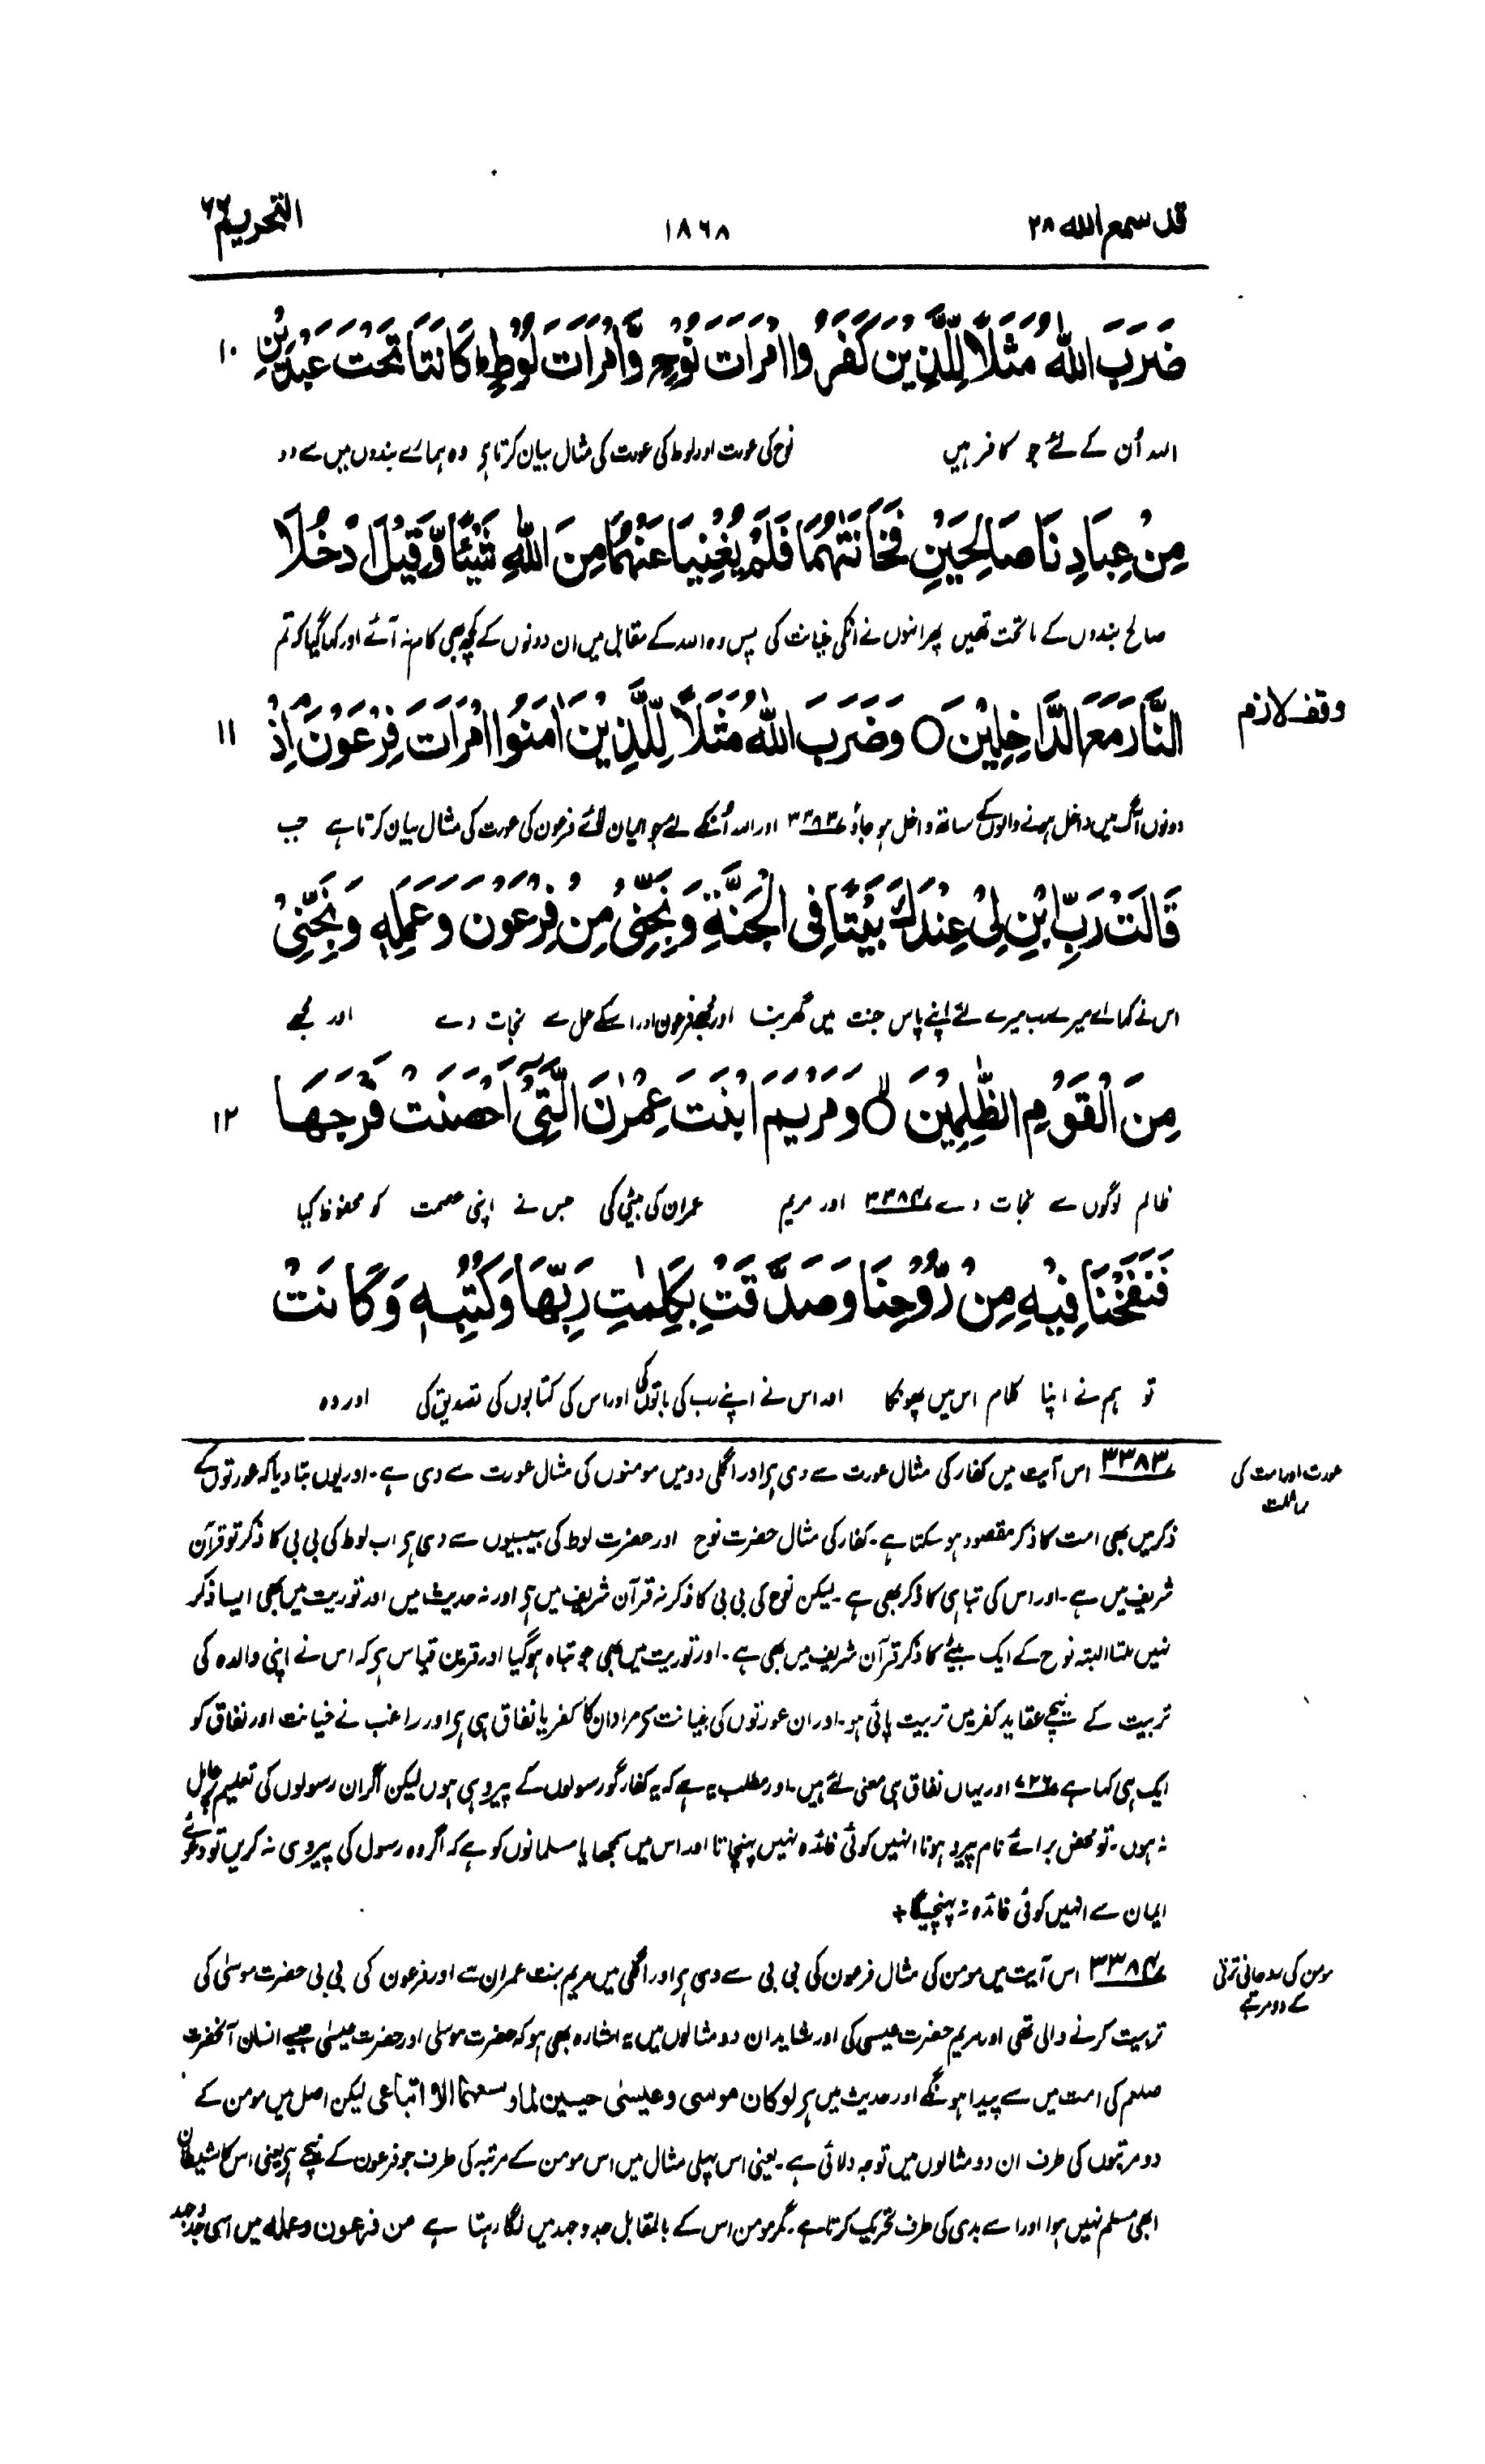 قد سمع الله ۲۸
۱۸۶۸
التحريم ۶۶
ضَرَبَ اللّٰهُ مَثَلًا لِّلَّذِيْنَ كَفَرُوا امْرَاَتَ نُوْحٍ وَّامْرَاَتَ لُوْطٍ ؕ كَانَتَا تَحْتَ عَبْدَيْنِ ۱۰
اللہ اُن کے لئے جو کافر ہیں نوح کی عورت اور لوط کی عورت کی مثال بیان کرتا ہے وہ ہمارے بندوں میں سے دو
مِنْ عِبَادِنَا صَالِحَيْنِ فَخَانَتٰهُمَا فَلَمْ يُغْنِيَا عَنْهُمَا مِنَ اللّٰهِ شَيْئًا وَّقِيْلَ ادْخُلَا
صالح بندوں کے ماتحت تھیں پھر انہوں نے انکی خیانت کی پس وہ اللہ کے مقابل میں ان دونوں کے کچھ بھی کام نہ آئے اور کہا گیا کہ تم
وقف لازم
النَّارَ مَعَ الدَّاخِلِيْنَ ○ وَضَرَبَ اللّٰهُ مَثَلًا لِّلَّذِيْنَ اٰمَنُوا امْرَاَتَ فِرْعَوْنَ ۘ اِذْ ۱۱
دونوں آگ میں داخل ہونے والوں کے ساتھ داخل ہو جاؤ ۳۳۸۳ اور اللہ اُنکے لئے جو ایمان لائے فرعون کی عورت کی مثال بیان کرتا ہے جب
قَالَتْ رَبِّ ابْنِ لِيْ عِنْدَكَ بَيْتًا فِي الْجَنَّةِ وَنَجِّنِيْ مِنْ فِرْعَوْنَ وَعَمَلِهٖ وَنَجِّنِيْ
اس نے کہا اے میرے رب میرے لئے اپنے پاس جنت میں گھر بنا اور مجھے فرعون اور اسکے عمل سے نجات دے اور مجھے
مِنَ الْقَوْمِ الظّٰلِمِيْنَ ○ وَمَرْيَمَ ابْنَتَ عِمْرٰنَ الَّتِيْٓ اَحْصَنَتْ فَرْجَهَا ۱۲
ظالم لوگوں سے نجات دے ۳۳۸۴ اور مریم عمران کی بیٹی کی جس نے اپنی عصمت کو محفوظ کیا
فَنَفَخْنَا فِيْهِ مِنْ رُّوْحِنَا وَصَدَّقَتْ بِكَلِمٰتِ رَبِّهَا وَكُتُبِهٖ وَكَانَتْ
تو ہم نے اپنا کلام اس میں پھونکا اور اس نے اپنے رب کی باتوں کی اور اس کی کتابوں کی تصدیق کی اور وہ
عورت اور امت کی
مماثلت
۳۳۸۳ اس آیت میں کفار کی مثال عورت سے دی ہے اور اگلی دو میں مومنوں کی مثال عورت سے دی ہے۔ اور یوں بتا دیا کہ عورتوں کے
ذکر میں بھی امت کا ذکر مقصود ہو سکتا ہے۔ کفار کی مثال حضرت نوح اور حضرت لوط کی بیبیوں سے دی ہے اب لوط کی بی بی کا ذکر تو قرآن
شریف میں ہے۔ اور اس کی تباہی کا ذکر بھی ہے۔ لیکن نوح کی بی بی کا ذکر نہ قرآن شریف میں ہے اور نہ حدیث میں اور توریت میں بھی ایسا ذکر
نہیں ملتا البتہ نوح کے ایک بیٹے کا ذکر قرآن شریف میں بھی ہے۔ اور توریت میں بھی جو تباہ ہو گیا اور قرین قیاس ہے کہ اس نے اپنی والدہ کی
تربیت کے نیچے عقاید کفر میں تربیت پائی ہو۔ اور ان عورتوں کی خیانت سے مراد ان کا کفر یا نفاق ہی ہے اور راغب نے خیانت اور نفاق کو
ایک ہی کہا ہے ۷۲۶ اور یہاں نفاق ہی معنی لئے ہیں۔ اور مطلب یہ ہے کہ یہ کفار گو رسولوں کے پیرو ہی ہوں لیکن اگر ان رسولوں کی تعلیم پر عامل
نہ ہوں۔ تو محض برائے نام پیرو ہونا انہیں کوئی فائدہ نہیں پہنچاتا اور اس میں سمجھایا مسلمانوں کو ہے کہ اگر وہ رسول کی پیروی نہ کریں تو دعوئے
ایمان سے انہیں کوئی فائدہ نہ پہنچیگا +
مومن کی روحانی ترقی
کے دو مرتبے
۳۳۸۴ اس آیت میں مومن کی مثال فرعون کی بی بی سے دی ہے اور اگلی میں مریم بنت عمران سے اور فرعون کی بی بی حضرت موسیٰ کی
تربیت کرنے والی تھی اور مریم حضرت عیسیٰ کی اور شاید ان دو مثالوں میں یہ اشارہ بھی ہو کہ حضرت موسیٰ اور حضرت عیسیٰ جیسے انسان آنحضرت
صلعم کی امت میں سے پیدا ہونگے اور حدیث میں ہے لو كان موسى وعيسىٰ حيين لما وسعهما الا اتباعى لیکن اصل میں مومن کے
دو مرتبوں کی طرف ان دو مثالوں میں توجہ دلائی ہے۔ یعنی اس پہلی مثال میں اس مومن کے مرتبہ کی طرف جو فرعون کے نیچے ہے یعنی اس کا شیطان
ابھی مسلم نہیں ہوا اور اسے بدی کی طرف تحریک کرتا ہے۔ مگر مومن اس کے بالمقابل جدوجہد میں لگا رہتا ہے من فرعون وعمله میں اسی جدوجہد